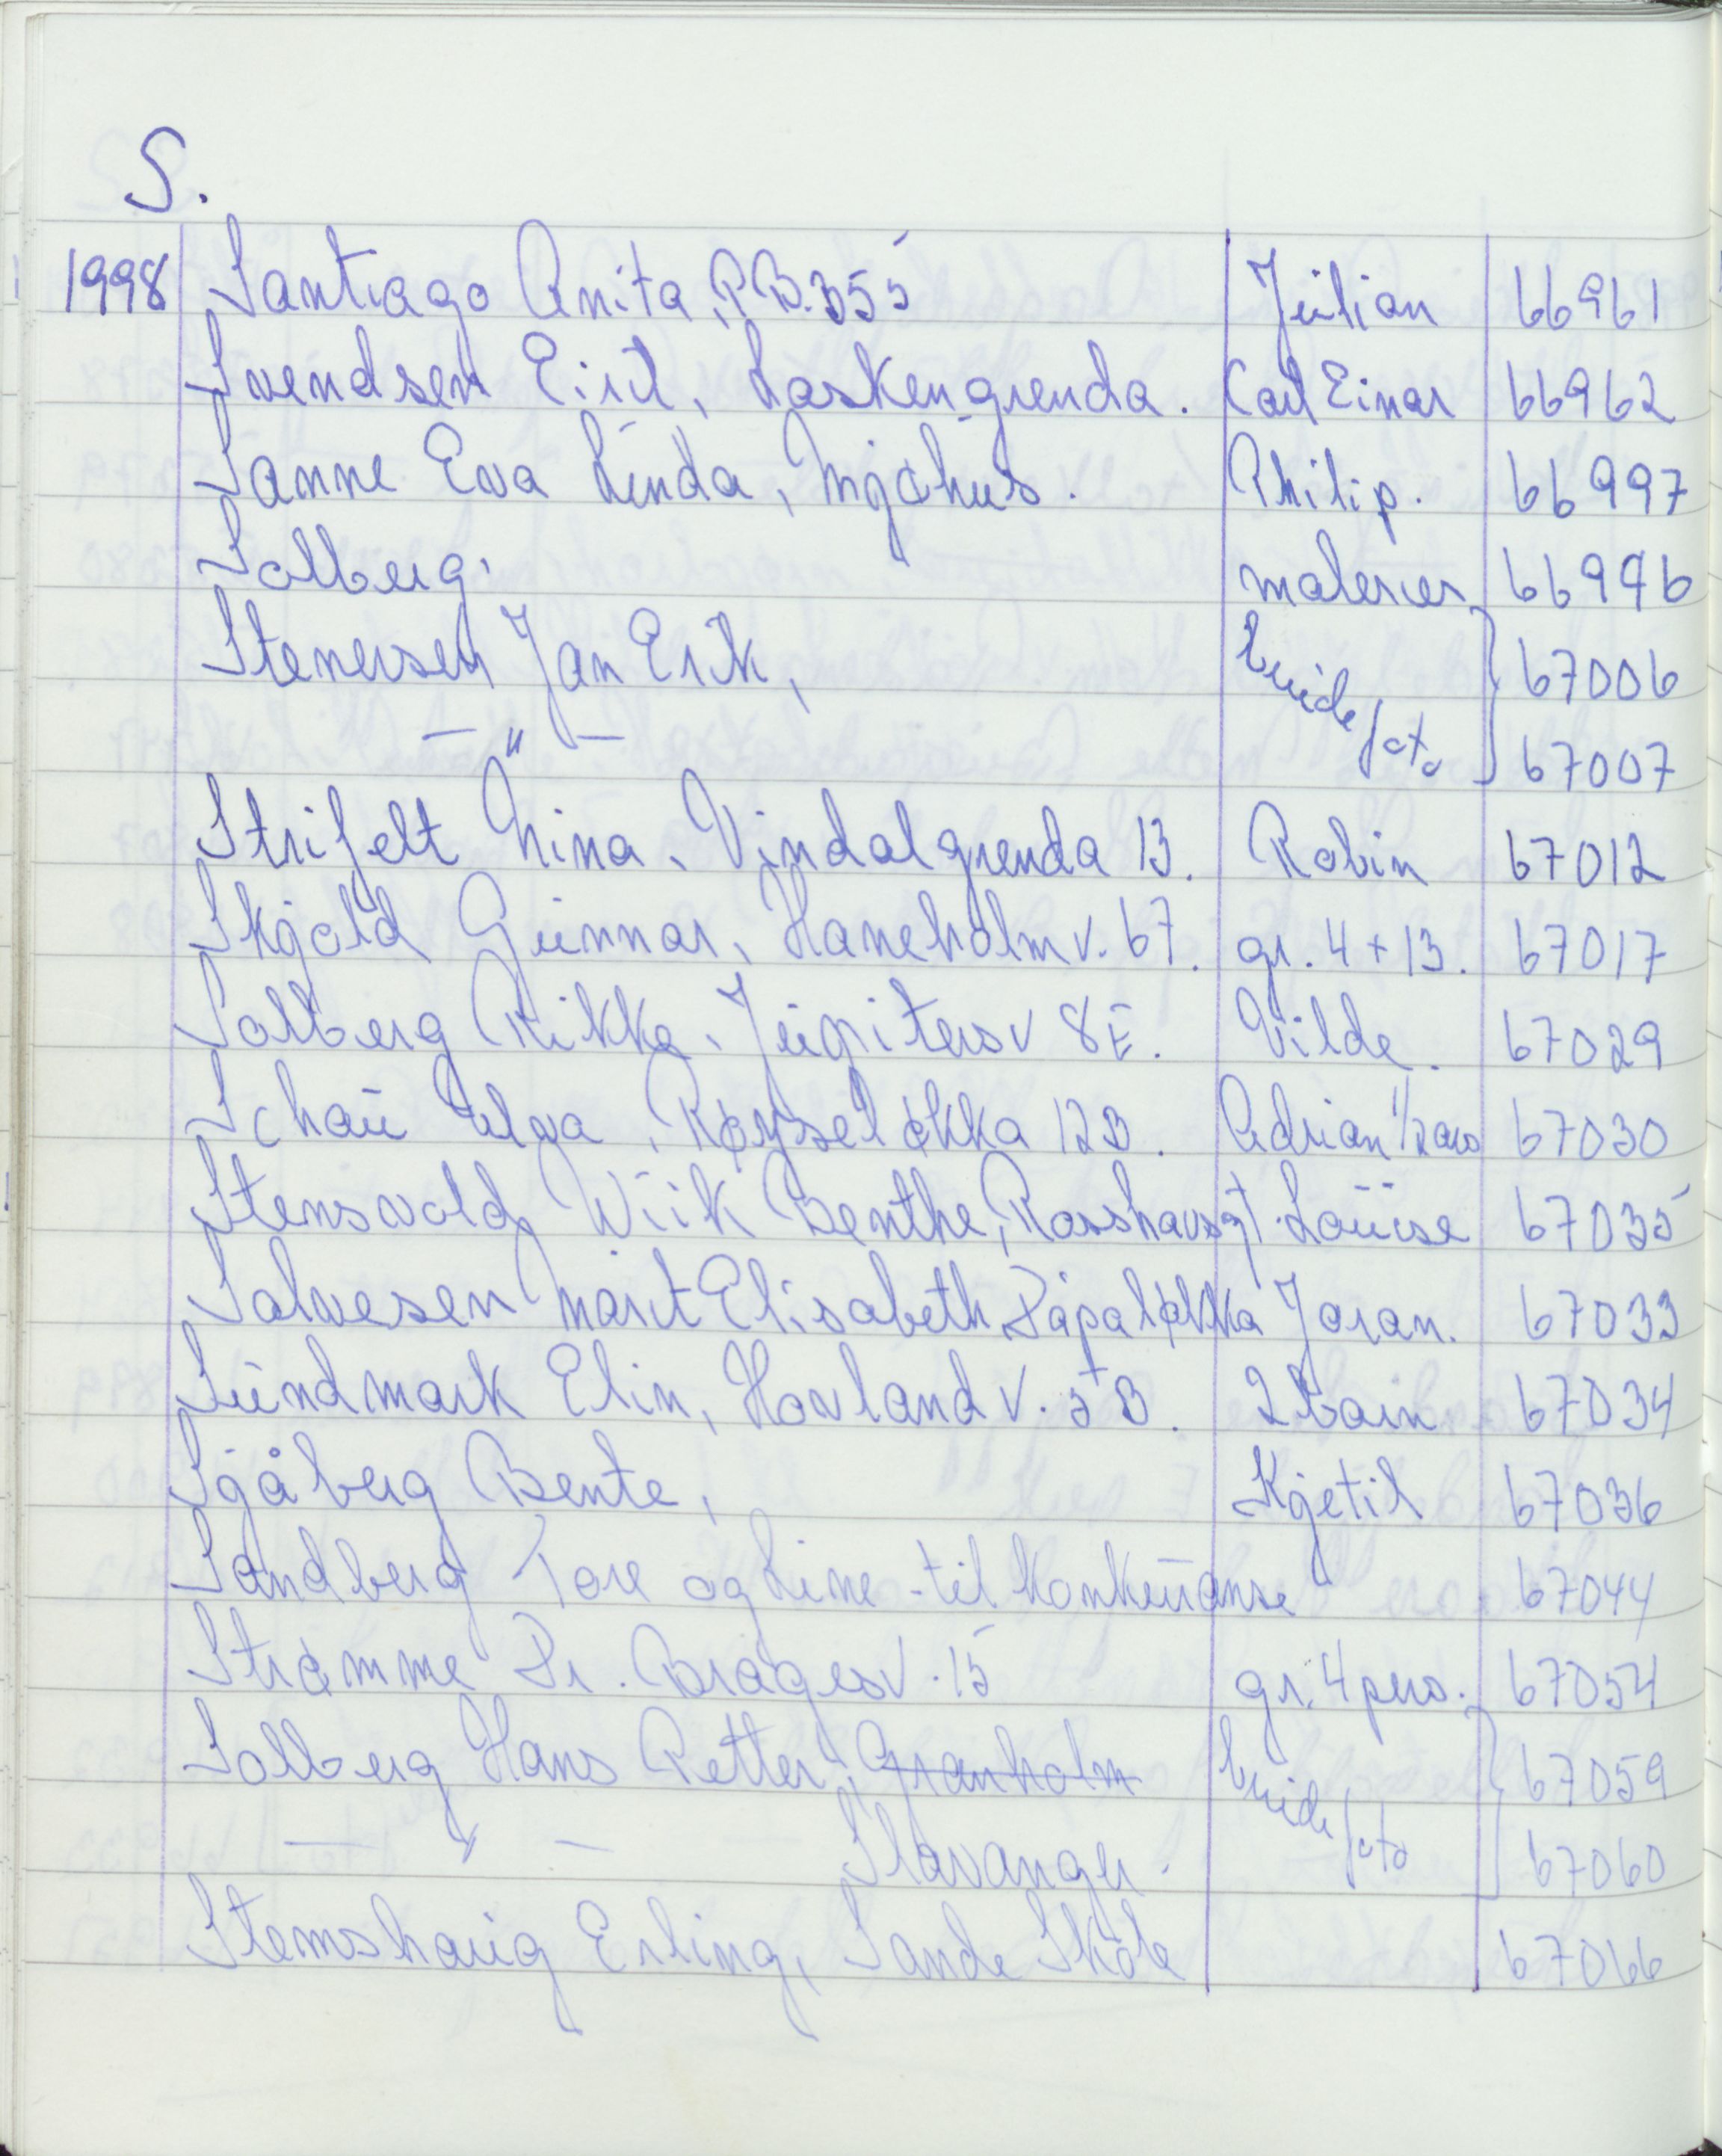 S.
1998 Santiago Anita, P.B. 355 Julian 66961
Svendsen Eirik, Laskengrenda. Carl Einar 66962
Sanne Eva Linda, Mjøhus. Philip. 66997
Solberg. malerier 66996
Stenersen Jan Erik, brude 67006
— " — foto 67007
Strifelt Nina, Vindalgrenda 13. Robin 67012
Skjold Gunnar, Haneholmv. 67. gr. 4 + 13. 67017
Solberg Rikke, Jupitersv 8E. Vilde. 67029
Schau Elga, Røysel økka 12B. Adrian 1/2 års 67030
Stensvold Wiik Benthe, Rosshavsgt. Louise 67035
Salvesen Marit Elisabeth, Pápaløkka Joran. 67033
Sundmark Elin, Hovland v. 5B. 2 barn 67034
Sjåberg Bente, Kjetil 67036
Sandberg Tore og Line - til konkuranse 67044
Strømme Dr. Bragesv. 15 gr. 4 pers. 67054
Solberg Hans Petter, Granholm brude 67059
— " — Stavanger. foto 67060
Stemshaug Erling, Sande Skole 67066